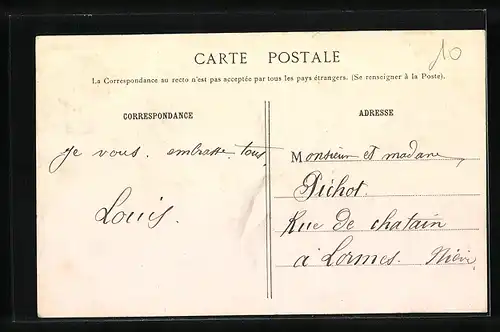 10
CARTE POSTALE
La Correspondance au recto n'est pas acceptée par tous les pays étrangers. (Se renseigner à la Poste).
CORRESPONDANCE
ADRESSE
Je vous. embrasse. tous.
Louis.
Monsieur et madame,
Pichot.
Rue de chatain
à Lormes. Nièv